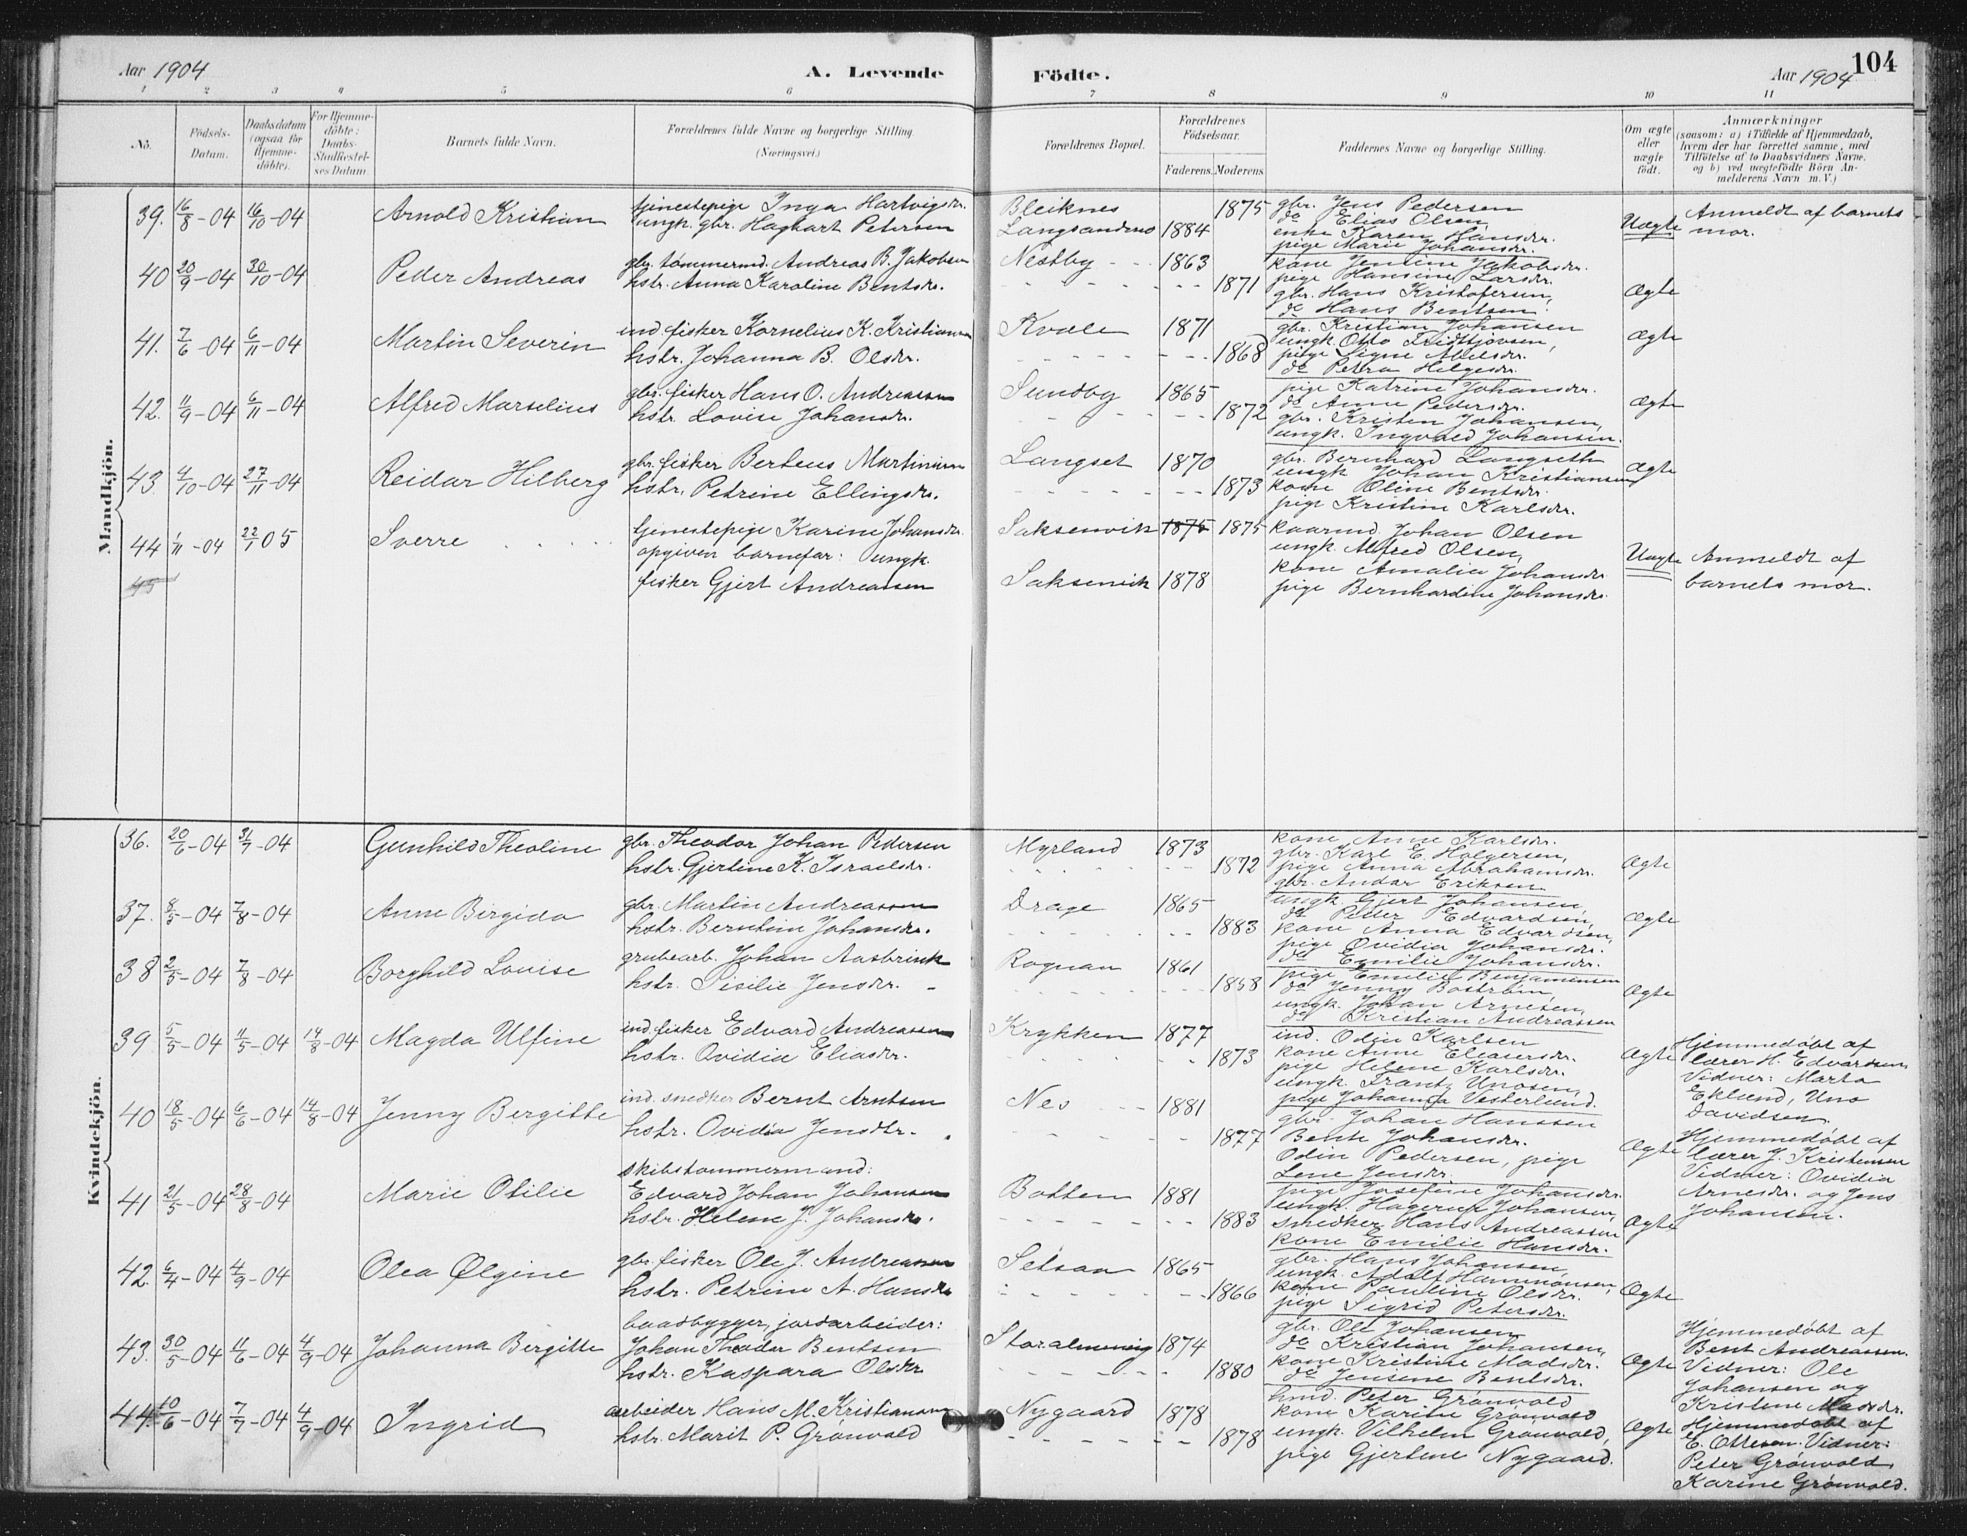 Aar 1904
A. Levende Födte.
Aar 1904
104
1 2 3 4 5 6 7 8 9 10 11
No.
Födsels-Datum.
Daabsdatum (ogsaa for Hjemme-döbte).
For Hjemme-döbte: Daabs-Stadfæstel-ses Datum.
Barnets fulde Navn.
Forældrenes fulde Navne og borgerlige Stilling (Næringsvei.)
Forældrenes Bopæl.
Forældrenes Födselsaar.
Faderens. Moderens.
Faddernes Navne og borgerlige Stilling.
Om ægte eller uægte födt.
Anmærkninger (saasom: a) i Tilfælde af Hjemmedaab, hvem der har forrettet samme, med Tilföielse af to Daabsvidners Navne, og b) ved uægtefödte Börn An-melderens Navn m. V.)
Mandkjön.
39. 16/8-04 16/10-04 Arnold Kristian
tjenestepige Inga Hartvigsdr.
ungk. gbr. Haghart Petersen
Bleiknes 1875
Langsandmo 1884
gbr. Jens Pedersen
do Elias Olsen
enke Karen Hansdr.
pige Marie Johansdr.
Uægte
Anmeldt af barnets
mor.
40 20/9-04 30/10-04 Peder Andreas
gbr. tømmermd. Andreas B. Jakobsen
hstr. Anna Karoline Bentsdr.
Nestby 1863
1871
kone Jensine Jakobsdr.
pige Hansine Larsdr.
gbr. Hans Kristofersen,
do Hans Bentsen.
Ægte
41. 7/6-04 6/11-04 Martin Severin
ind. fisker Kornelius K. Kristiansen
hstr. Johanna B. Olsdr.
Kvæle 1871
1868
gbr. Kristian Johansen
ungk. Otto Fridtjovsen,
pige Signe Abelsdr.
do Petra Helgesdr.
Ægte
42. 11/9-04 6/11-04 Alfred Marselius
gbr. fisker Hans O. Andreassen
hstr. Lovise Johansdr.
Sundby 1865
1872
pige Katrine Johansdr.
do Anne Pedersdr.
gbr. Kristen Johansen,
ungk. Ingvald Johansen.
Ægte
43. 4/10-04 27/11-04 Reidar Hilberg
gbr. fisker Berteus Martinsen
hstr. Petrine Ellingsdr.
Langset 1870
1873
gbr. Bernhard Langseth
ungk Johan Kristiansen
kone Oline Bentsdr.
pige Kristine Karlsdr.
Ægte
44 1/11-04 22/1 05 Sverre
tjenestepige Karine Johansdr.
opgiven barnefar: ungk.
fisker Gjert Andreassen
Saksenvik 1875 1875
Saksenvik 1878
kaarmd. Johan Olsen
ungk. Alfred Olsen,
kone Amalia Johansdr
pige Bernhardine Johansdr.
Uægte
Anmeldt af
barnets mor.
45
Kvindekjön.
36. 20/6-04 31/7-04 Gunhild Theoline
gbr. Theodor Johan Pedersen
hstr. Gjertine K. Israelsdr.
Myrland 1873
1872
kone Anne Karlsdr.
gbr. Karl E. Holgersen,
pige Anna Abrahamsdr.
gbr. Andor Eriksen.
Ægte
37. 8/5-04 7/8-04 Anne Birgida
gbr. Martin Andreassen
hstr. Berntine Johansdr.
Drage 1865
1883
ungk. Gjert Johansen
do Peder Edvardsen,
kone Anna Edvardsen,
pige Ovidia Johansdr.
do Emilie Johansdr.
Ægte
38 2/5-04 7/8-04 Borghild Louise
grubearb. Johan Aasbrink
hstr. Sisilie Jensdr.
Rognan 1861
1858
pige Emilie Benjaminsen
do Jenny Boström
ungk. Johan Arnesen,
do Kristian Andreassen
Ægte
39 5/5-04 11/5-04 14/8-04 Magda Ulfine
ind. fisker Edvard Andreassen
hstr. Ovidia Eliasdr.
Krykken 1877
1873
ind. Odin Karlsen
kone Anne Eleasersdr.
pige Helene Karlsdr.
ungk. Frantz Unosen,
pige Johanna Vesterlund.
Ægte
Hjemmedøbt af
lærer H. Edvardsen,
Vidner: Marta
Eklund, Uno
Davidsen.
40 18/5-04 6/6-04 14/8-04 Jenny Bergitte
ind. snedker Bernt Arntsen
hstr. Ovidia Jensdtr.
Nes 1881
1877
gbr Johan Hanssen
Bente Johansdr.
Odin Pedersen, pige
Lene Jensdr.
Ægte
Hjemmedøbt af
lærer J. Kristensen
Vidner: Ovidia
Arnesdr. og Jens
Johansen.
41 21/5-04 28/8-04 Marie Otilie
skibstømmermand:
Edvard Johan Johansen
hstr. Helene J. Johansdr.
Botten 1881
1883
pige Josefine Johansdr.
ungk. Hagerup Johansen,
snedker Hans Andreassen
kone Emilie Hansdr.
Ægte
42. 6/4-04 4/9-04 Olea Ølgine
gbr. fisker Ole J. Andreassen
hstr. Petrine A. Hansdr
Setsaa 1865
1866
gbr. Hans Johansen,
ungk. Adolf Hammonsen,
kone Pauline Olsdr.
pige Sigrid Petersdr.
Ægte
43. 30/5-04 11/6-04 4/9-04 Johanna Bergitte
baadbygger, jordarbeider:
Johan Theodor Bentsen
hstr. Kaspara Olsdr
Storalmening 1874
1880
gbr. Ole Johansen
do Kristian Johansen,
kone Kristine Madsdr.
do Jensine Bentsdr.
Ægte
Hjemmedøbt af
Bent Andreassen.
Vidner: Ole
Johansen og
Kristine Madsdr.
44. 10/6-04 7/7-04 4/9-04 Ingrid
arbeider Hans M. Kristiansen
hstr. Marit P. Grønvold
Nygaard 1878
1878
hmd. Peter Grønvold
kone Karine Grønvold
ungk. Vilhelm Grønvold,
pige Gjertine Nygaard.
Ægte
Hjemmedøbt af
E. Ottesen. Vidner:
Peter Grønvold,
Karine Grønvold.